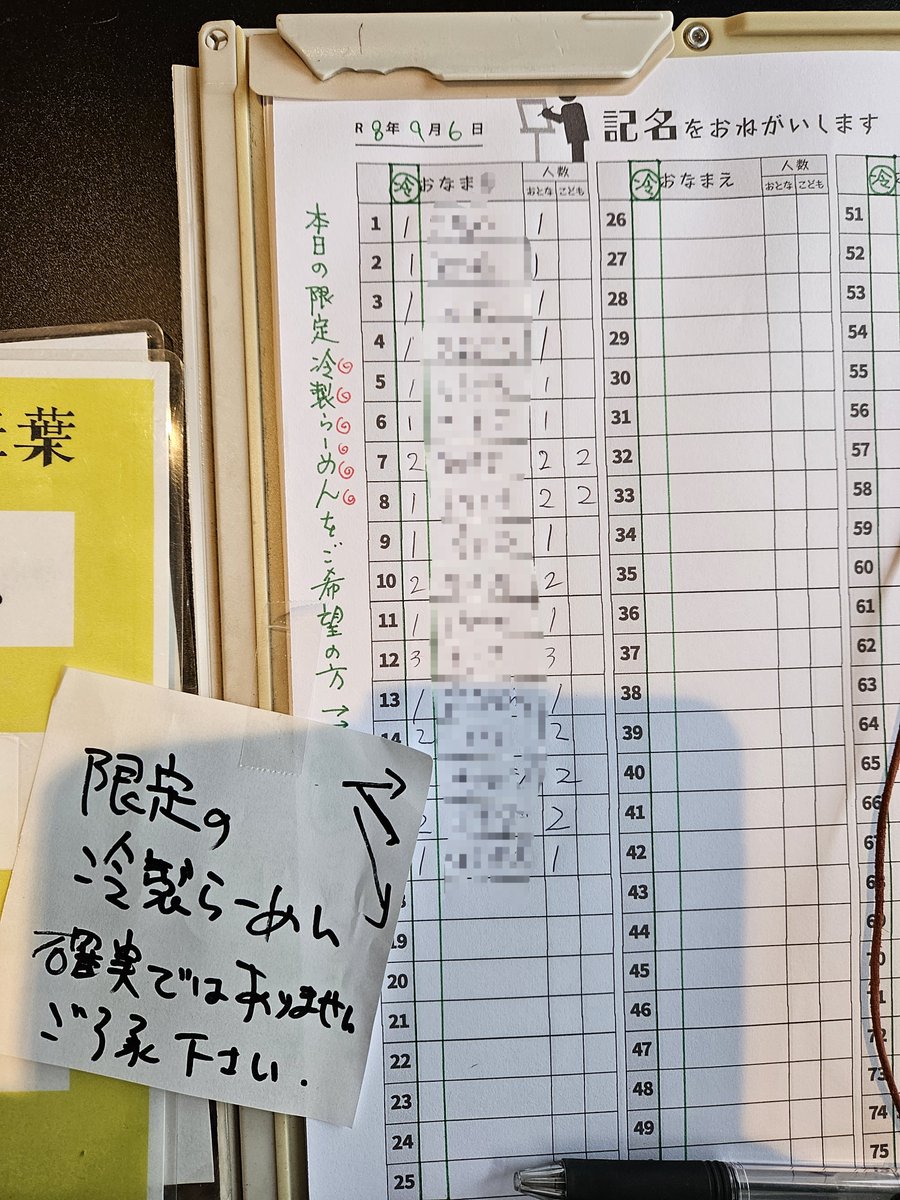 R8年9月6日
記名をおねがいします
冷 おなまえ 人数 おとな こども
冷 おなまえ 人数 おとな こども
冷
本日の限定冷製らーめんをご希望の方→
1 1 1
2 1 1
3 1 1
4 1 1
5 1 1
6 1 1
7 2 2 2
8 1 2 2
9 1 1
10 2 2
11 1 1
12 3 3
13 1 1
14 2 2
2
2 2
1 1
19
20
21
22
23
24
25
26
27
28
29
30
31
32
33
34
35
36
37
38
39
40
41
42
43
44
45
46
47
48
49
51
52
53
54
55
56
57
58
59
60
61
62
63
64
65
66
67
68
69
70
71
72
73
74
75
葉
限定の
冷製らーめん
確実ではありません
ご了承下さい.